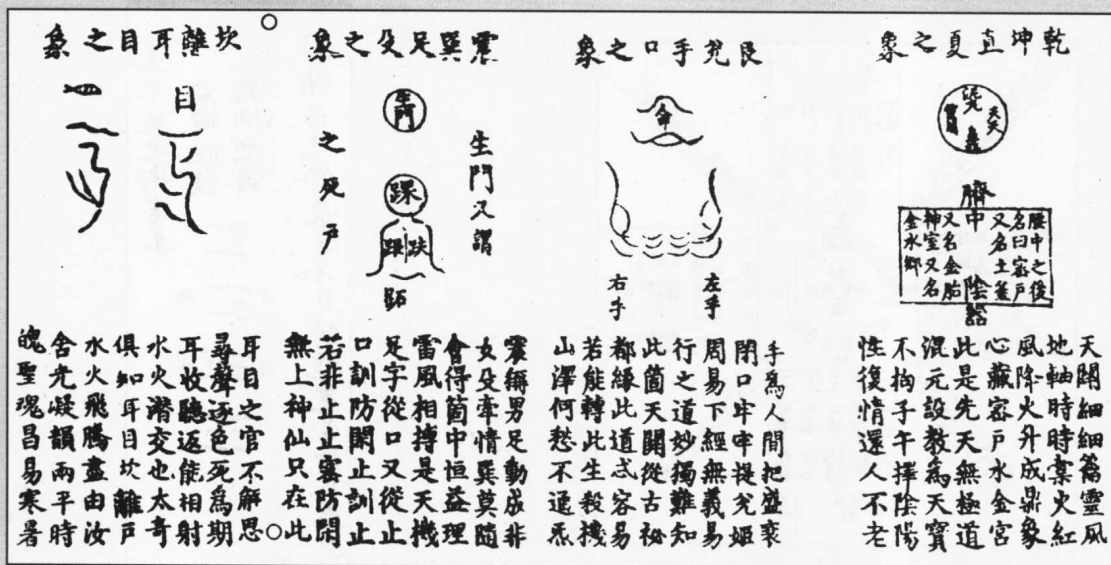 乾坤直夏之象
臍中
陰
腰中之後
名曰密戶
又名土釜
又名金胎
神室又名
金水鄉
天閉細細籥靈風
地軸時時橐火紅
風降火升成鼎象
心藏密戶水金宮
此是先天無極道
混元設教為天寶
不拘子午擇陰陽
性復情還人不老
艮兌手口之象
命
左手
右手
手為人間把盛衰
閉口牢牢提兌姬
周易下經無義易
行之道妙獨難知
此箇天關從古祕
都緣此道忒容易
若能轉此生殺機
山澤何愁不通炁
震巽足殳之象
生門又謂
生門
踝
趺
跟
之死戶
震稱男足動成非
女殳牽情巽莫隨
會得箇中恒益理
雷風相搏是天機
足字從口又從止
口訓防閑止訓止
若非止止密防閑
無上神仙只在此
坎離耳目之象
目
耳目之官不解思
尋聲逐色死為期
耳收聽返能相射
水火潛交也太奇
俱知耳目坎離戶
水火飛騰盡由汝
含光凝韻兩平時
魄聖魂昌易寒暑